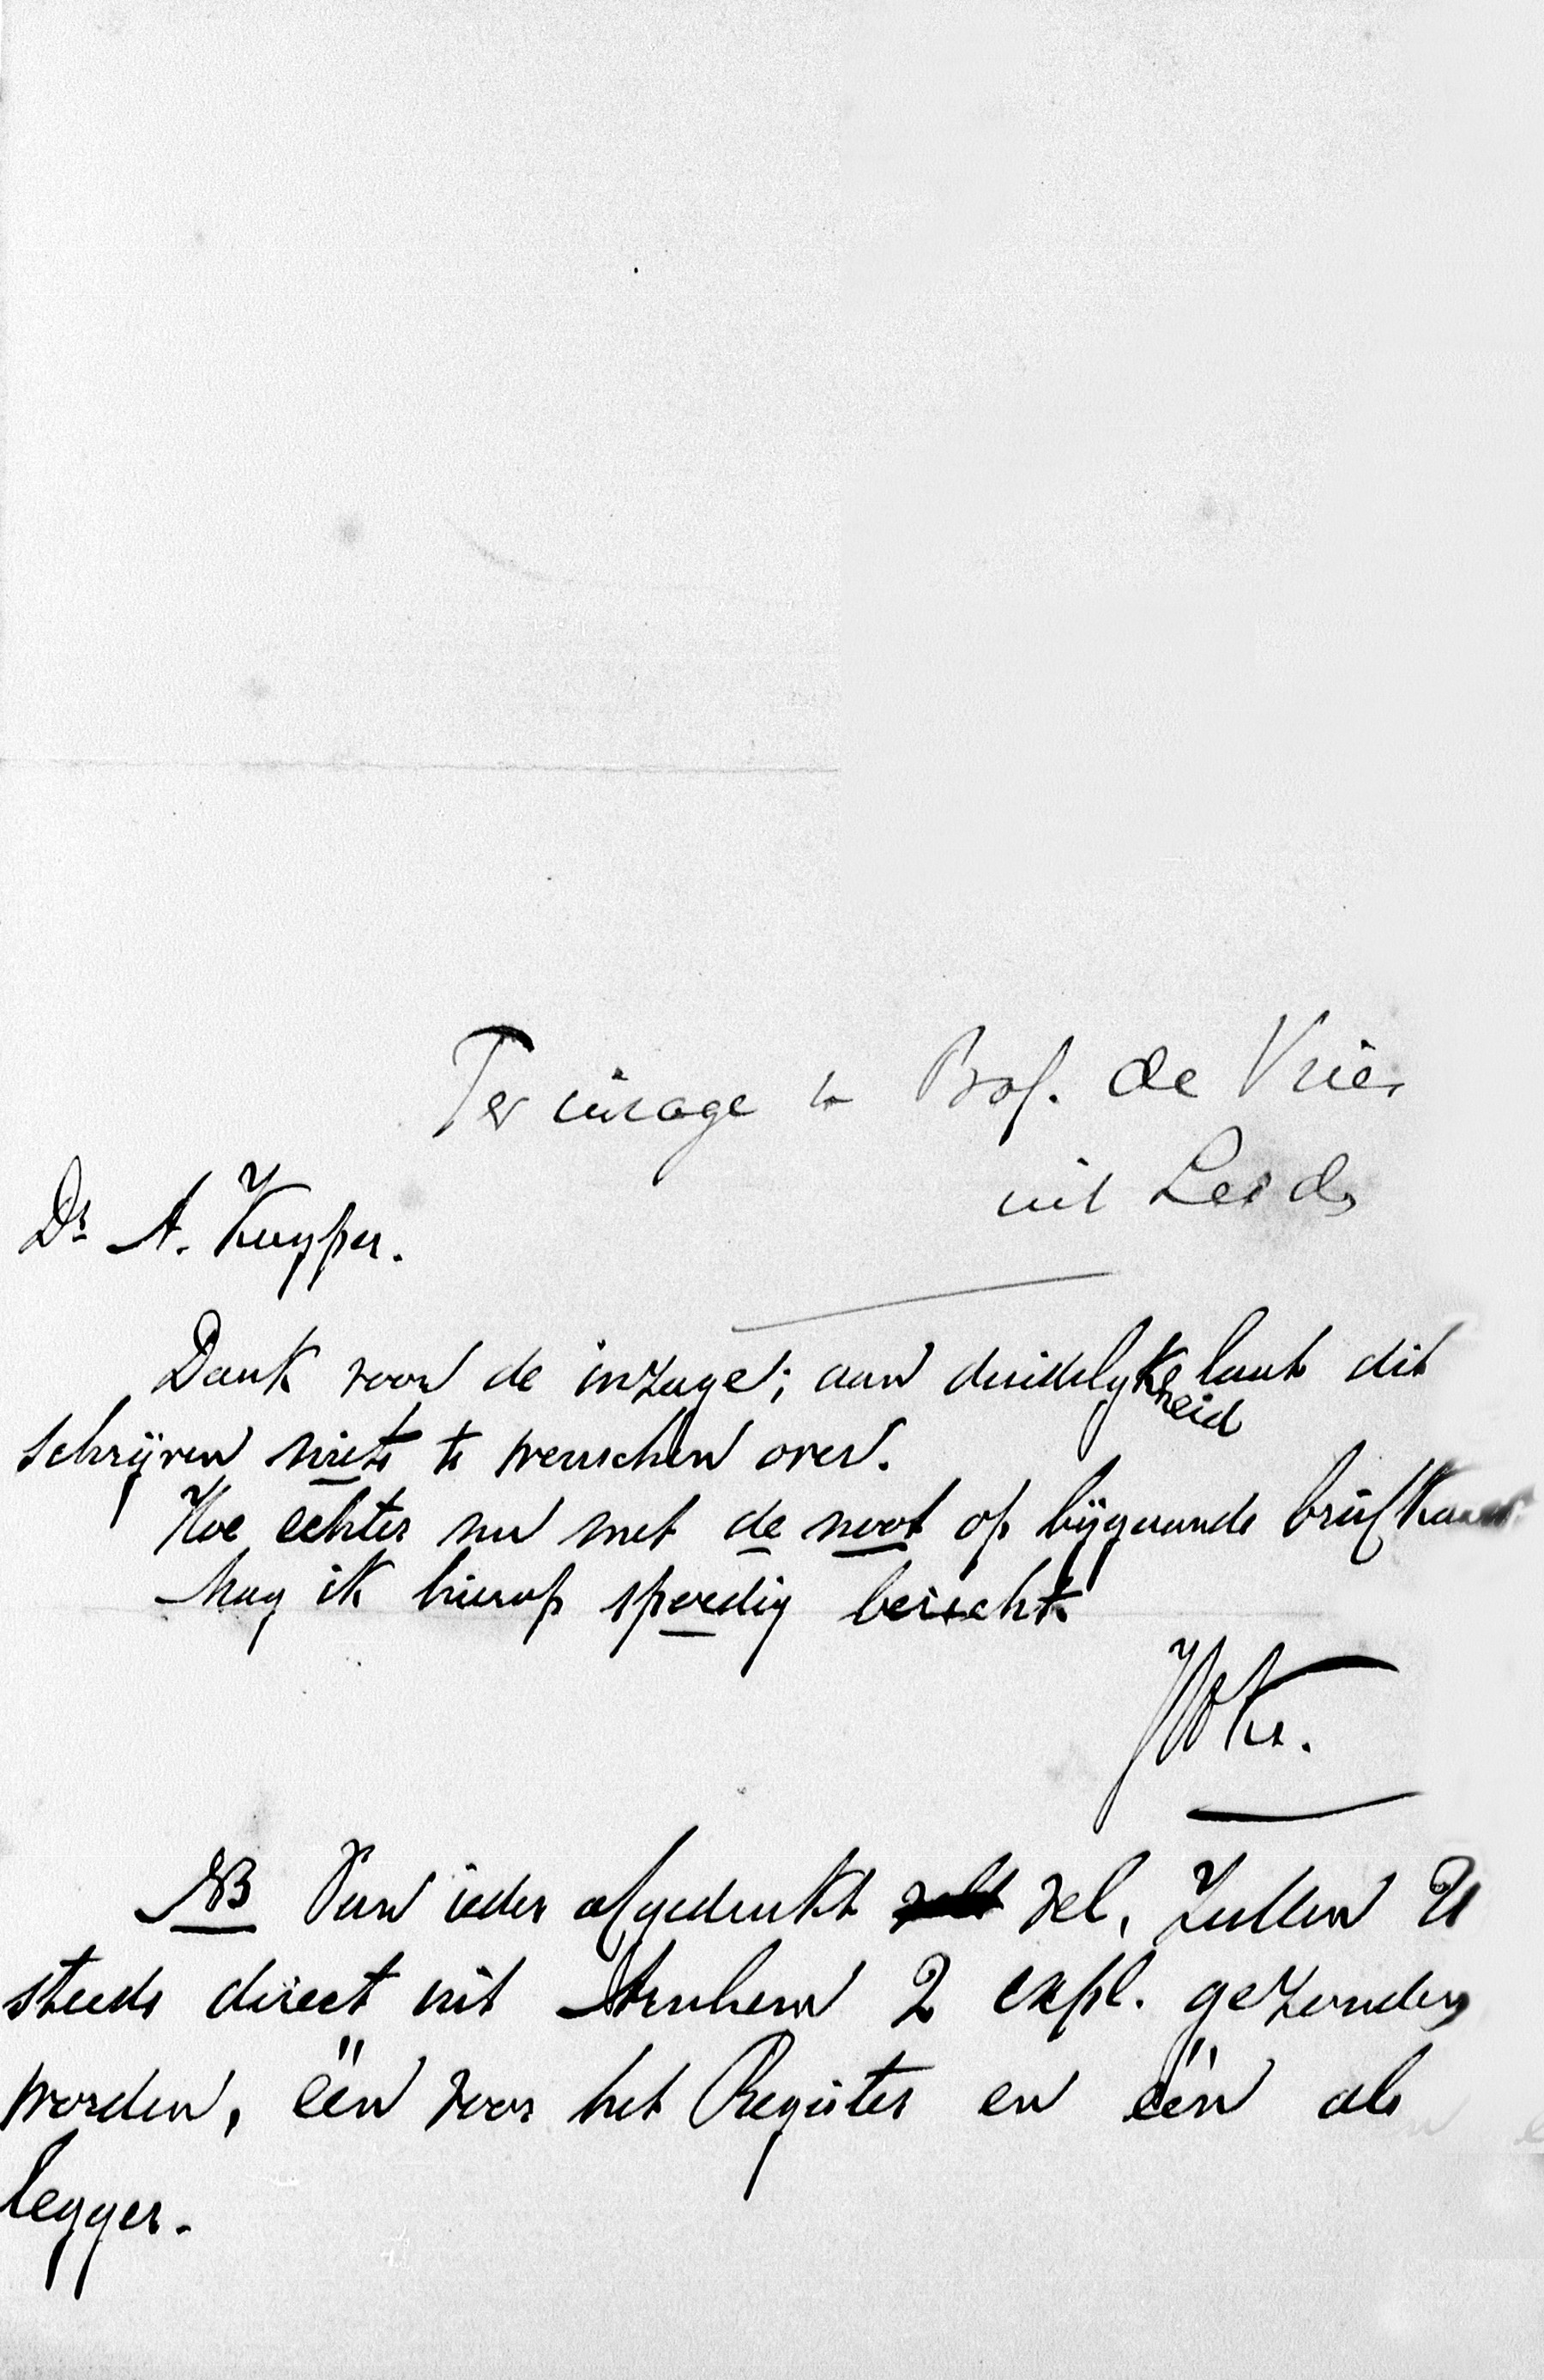 Ter inzage v Prof. de Vries
uit Leids
Dr A. Kuyper.
Dank voor de inzage; aan duidelykheid laat dit
schrijven niets te wenschen over.
Hoe echter nu met de noot op bijgaande briefkaart
Mag ik hierop spoedig bericht.
JWKr.
NB Van ieder afgedrukt vel, zullen U
steeds direct uit Arnhem 2 expl. gezonden
worden, één voor het Register en één als
legger.